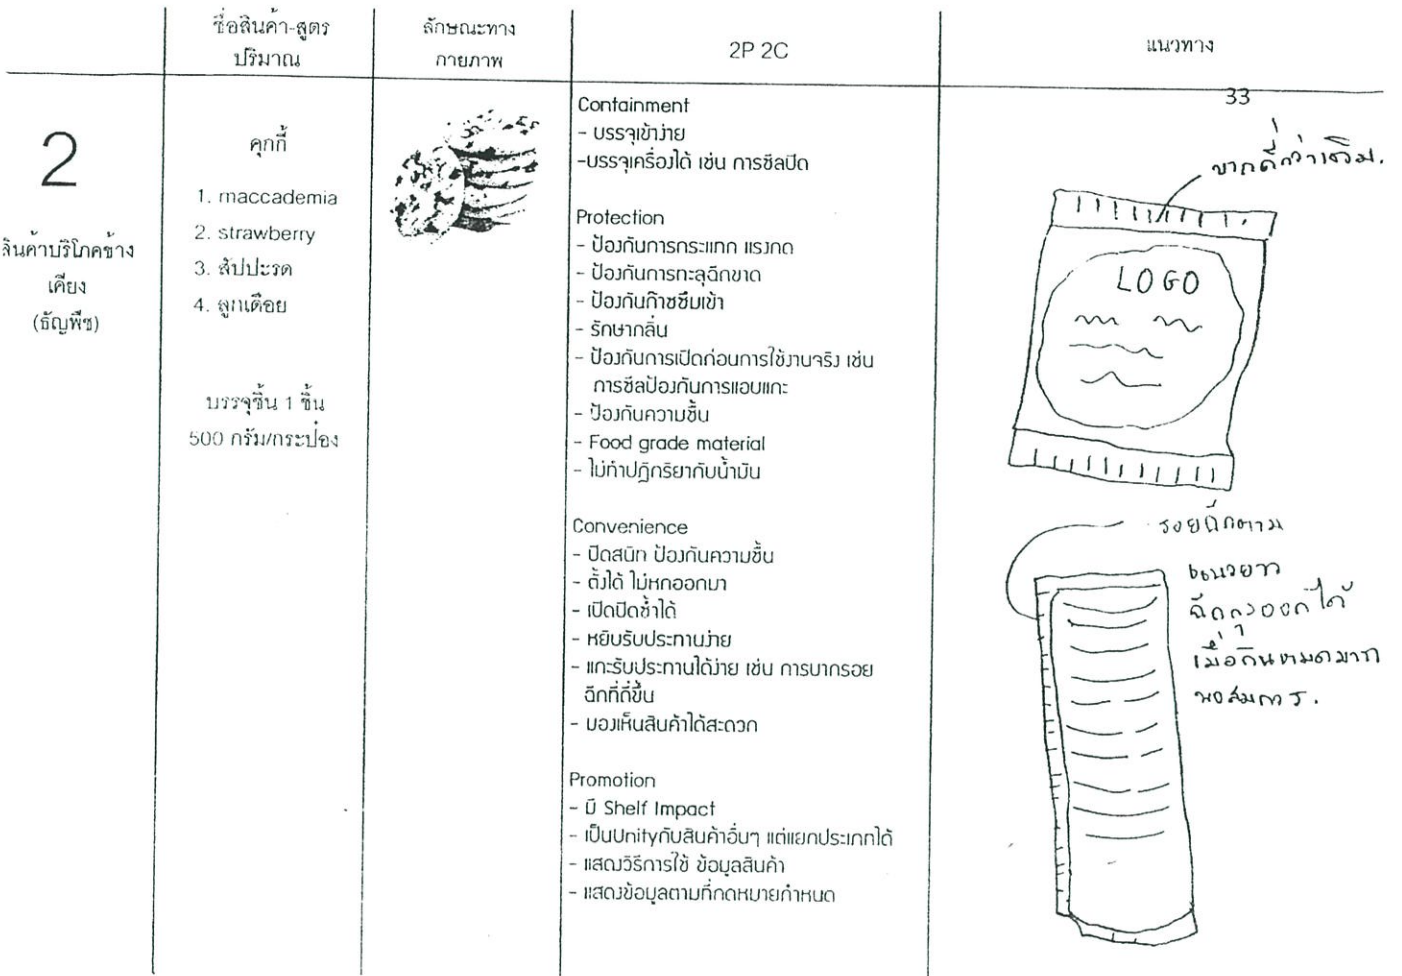 ชื่อสินค้า-สูตร
ปริมาณ
ลักษณะทาง
กายภาพ
2P 2C
แนวทาง
33
2
สินค้าบริโภคข้าง
เคียง
(ธัญพืช)
คุกกี้
1. maccademia
2. strawberry
3. สัปปะรด
4. ลูกเดือย
บรรจุชิ้น 1 ชิ้น
500 กรัม/กระป๋อง
Containment
- บรรจุเข้าง่าย
-บรรจุเครื่องได้ เช่น การซีลปิด
Protection
- ป้องกันการกระแทก แรงกด
- ป้องกันการทะลุฉีกขาด
- ป้องกันก๊าซซึมเข้า
- รักษากลิ่น
- ป้องกันการเปิดก่อนการใช้งานจริง เช่น
การซีลป้องกันการแอบแกะ
- ป้องกันความชื้น
- Food grade material
- ไม่ทำปฏิกริยากับน้ำมัน
Convenience
- ปิดสนิท ป้องกันความชื้น
- ตั้งได้ ไม่หกออกมา
- เปิดปิดซ้ำได้
- หยิบรับประทานง่าย
- แกะรับประทานได้ง่าย เช่น การบากรอย
ฉีกที่ถี่ขึ้น
- มองเห็นสินค้าได้สะดวก
Promotion
- มี Shelf Impact
- เป็นUnityกับสินค้าอื่นๆ แต่แยกประเภทได้
- แสดงวิธีการใช้ ข้อมูลสินค้า
- แสดงข้อมูลตามที่กดหมายกำหนด
บากถี่กว่าเดิม.
LOGO
รอยฉีกตาม
แนวยาว
ฉีดถุงออกได้
เมื่อกินหมดมาก
พอสมควร.